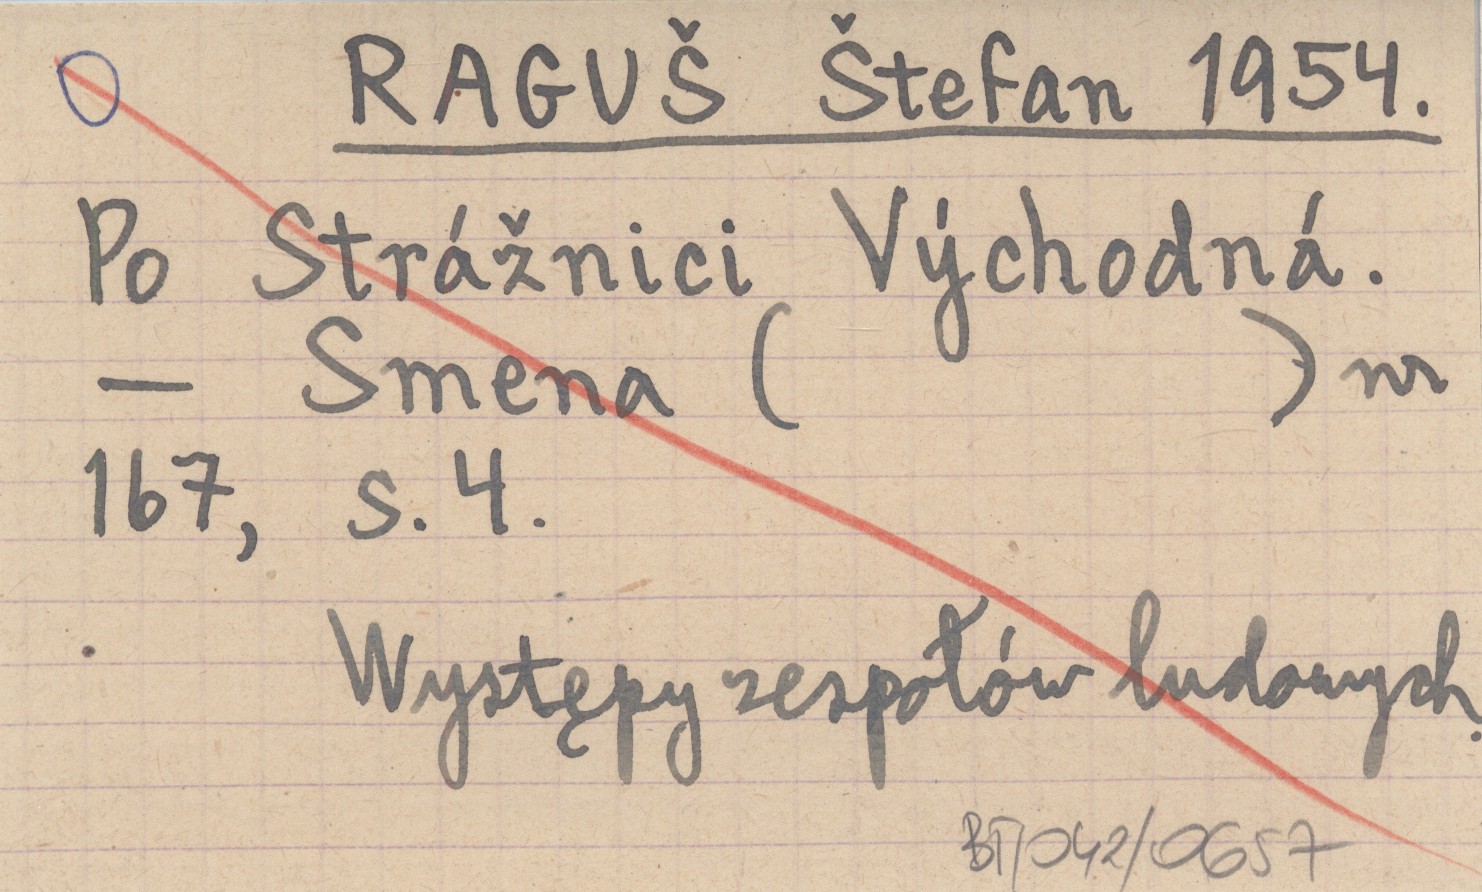 RAGUŠ Štefan 1954.
Po Strážnici Východná.
— Smena ( ) nr
167, s. 4.
Występy zespołów ludowych.
BT/042/0657